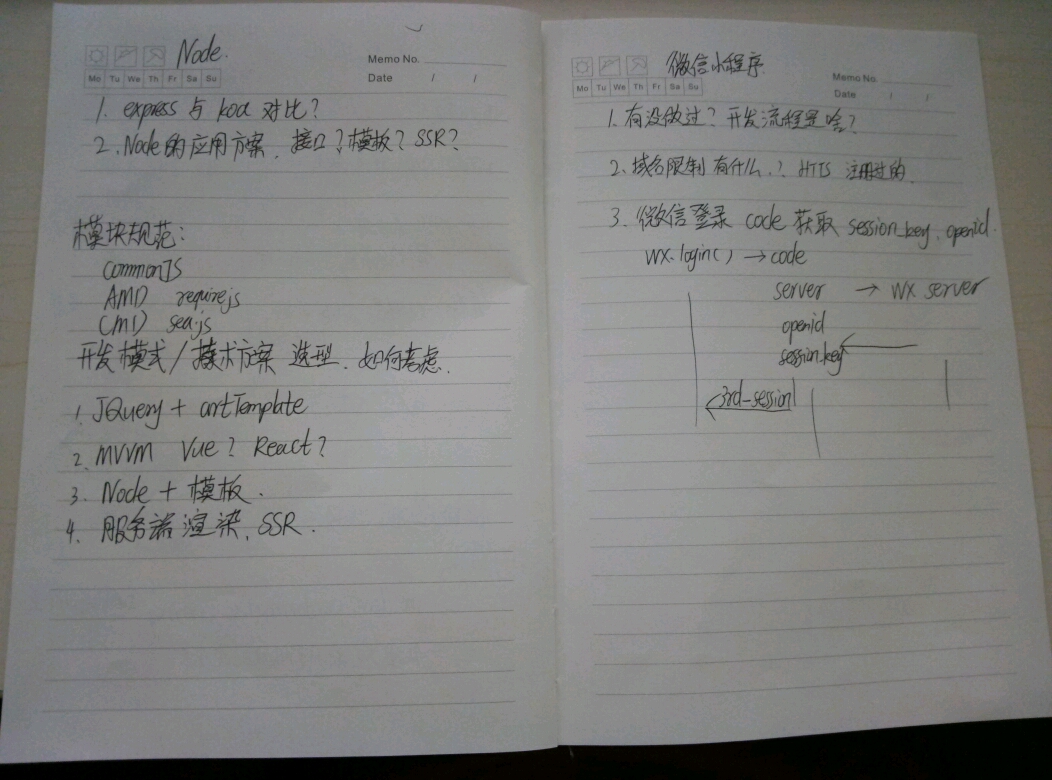 Node.
Memo No.
Mo Tu We Th Fr Sa Su
Date / /
1. express 与 koa 对比?
2. Node的应用方案. 接口? 模板? SSR?
模块规范:
CommonJS
AMD requirejs
CMD seajs
开发模式/技术方案 选型. 如何考虑.
1. JQuery + artTemplate
2. MVVM Vue? React?
3. Node + 模板.
4. 服务器渲染. SSR.
微信小程序
Memo No.
Mo Tu We Th Fr Sa Su
Date / /
1. 有没做过? 开发流程是啥?
2. 域名限制 有什么.? HTTS 注册过的.
3. 微信登录 code 获取 session_key. openid.
wx.login() → code
server → wx server
openid
session_key
3rd-session